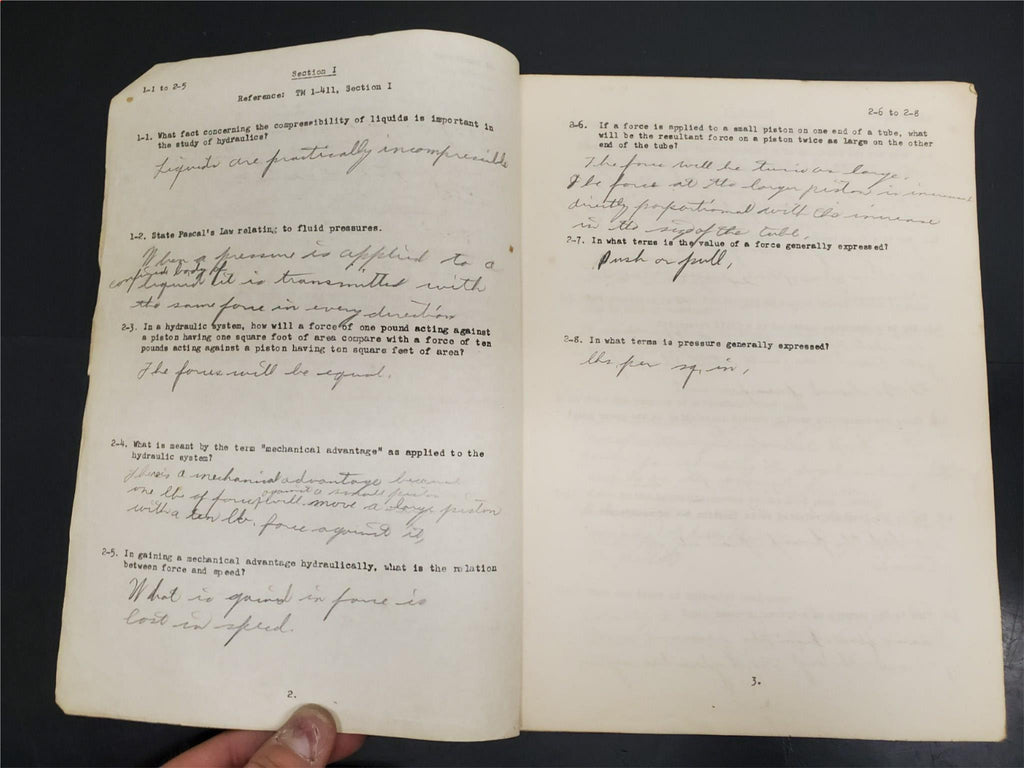 Section I
1-1 to 2-5
Reference: TM 1-411, Section I
1-1. What fact concerning the compressibility of liquids is important in
the study of hydraulics?
Liquids are practically incompressible
1-2. State Pascal's Law relating to fluid pressures.
When a pressure is applied to a
confined body of
liquid it is transmitted with
the same force in every direction
2-3. In a hydraulic system, how will a force of one pound acting against
a piston having one square foot of area compare with a force of ten
pounds acting against a piston having ten square feet of area?
The forces will be equal.
2-4. What is meant by the term "mechanical advantage" as applied to the
hydraulic system?
There is a mechanical advantage because
against a small piston
one lb of force will move a large piston
with a ten lb. force against it,
2-5. In gaining a mechanical advantage hydraulically, what is the relation
between force and speed?
What is gained in force is
lost in speed.
2.
2-6 to 2-8
2-6. If a force is applied to a small piston on one end of a tube, what
will be the resultant force on a piston twice as large on the other
end of the tube?
The force will be twice as large.
The force at the larger piston is increased
directly proportional with the increase
in the size of the tube.
2-7. In what terms is the value of a force generally expressed?
Push or pull,
2-8. In what terms is pressure generally expressed?
lbs per sq. in,
3.